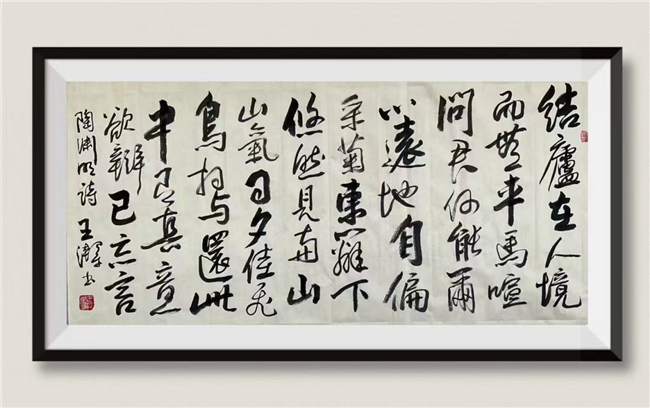 結廬在人境
而無車馬喧
問君何能爾
心遠地自偏
采菊東籬下
悠然見南山
山氣日夕佳飛
鳥相与還此
中有真意
欲辯已忘言
陶渊明詩 王澤书